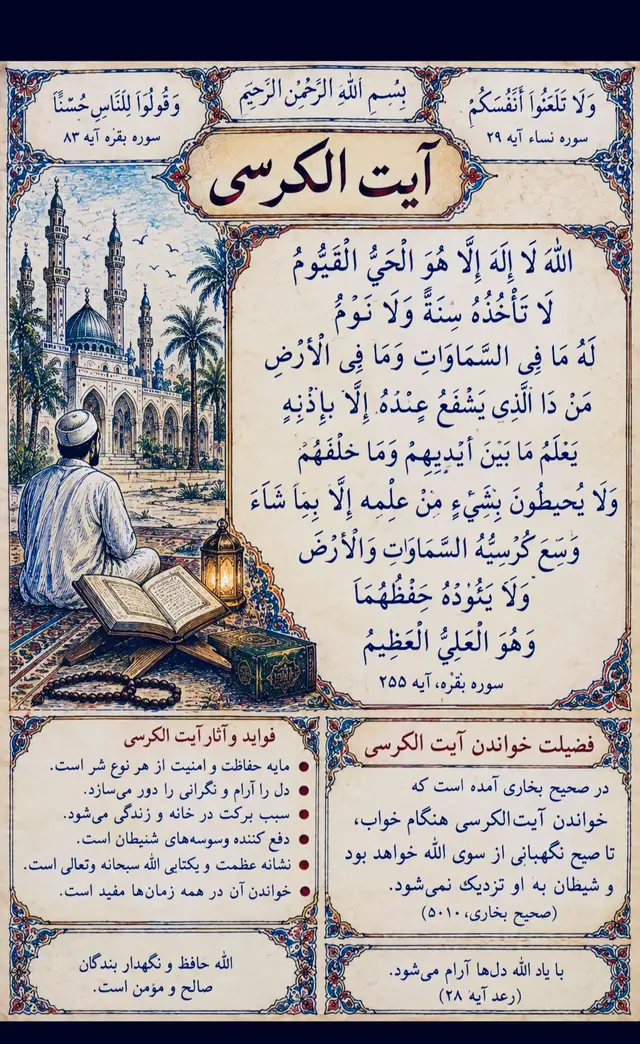 وَلَا تَلْعَنُوا أَنْفُسَكُمْ
سوره نساء آیه ۲۹
بِسْمِ اللهِ الرَّحْمٰنِ الرَّحِيْمِ
وَقُولُوا لِلنَّاسِ حُسْنًا
سوره بقره آیه ۸۳
آیت الکرسی
اللهَ لَا إِلَهَ إِلَّا هُوَ الْحَيُّ الْقَيُّومُ
لَا تَأْخُذُهُ سِنَةً وَلَا نَوْمُ
لَهُ مَا فِى السَّمَاوَاتِ وَمَا فِى الْأَرْضِ
مَنْ دَا الَّذِى يَشْفَعُ عِنْدَهُ إِلَّا بِإِذْنِهِ
يَعْلَمُ مَا بَيْنَ أَيْدِيهِمْ وَمَا خَلْفَهُمْ
وَلَا يُحيطُونَ بِشَيْءٍ مِنْ عِلْمِه إِلَّا بِمَا شَاءَ
وَسِعَ كُرْسِيُّهُ السَّمَاوَاتِ وَالْأَرْضَ
وَلَا يَئُودُهُ حِفْظُهُمَا
وَهُوَ الْعَلِيُّ الْعَظِيمُ
سوره بقره، آیه ۲۵۵
فضیلت خواندن آیت الکرسی
در صحیح بخاری آمده است که
خواندن آیت‌الکرسی هنگام خواب،
تا صبح نگهبانی از سوی الله خواهد بود
و شیطان به او تزدیک نمی‌شود.
(صحیح بخاری، ۵۰۱۰)
فواید و آثار آیت الکرسی
● مایه حفاظت و امنیت از هر نوع شر است.
● دل را آرام و نگرانی را دور می‌سازد.
● سبب برکت در خانه و زندگی می‌شود.
● دفع کننده وسوسه‌های شنیطان است.
● نشانه عظمت و یکتایی الله سبحانه وتعالی است.
● خواندن آن در همه زمان‌ها مفید است.
با یاد الله دل‌ها آرام می‌شود.
(رعد آیه ۲۸)
الله حافظ و نگهدار بندگان
صالح و مؤمن است.